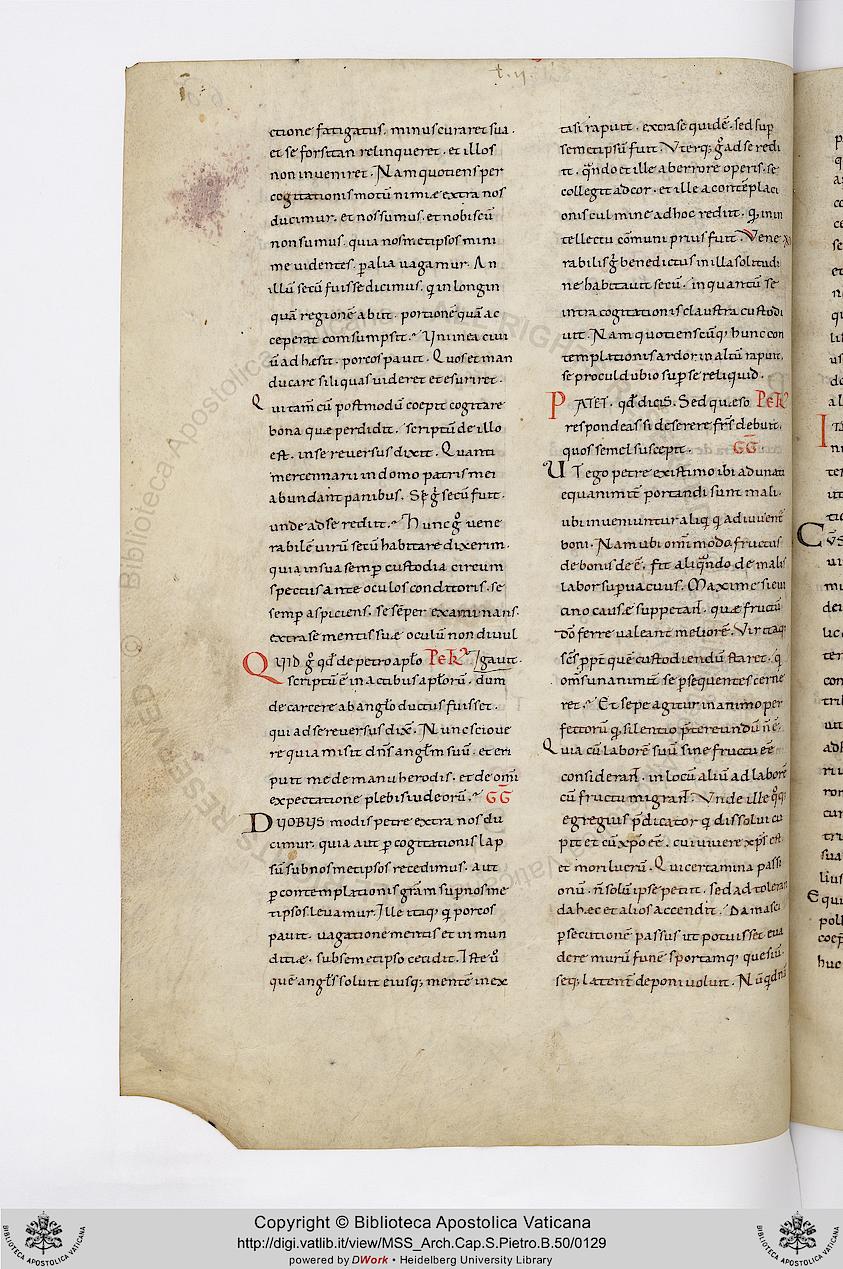 t. ij.
ctione fatigatus. minus curaret sua.
et se forsitan relinqueret. et illos
non inveniret. Nam quotiens per
cogitationis motū nimiæ extra nos
ducimur. et nos sumus. et nobiscū
non sumus. quia nosmetipsos mini
me videntes. ꝑ alia vagamur. An
illū secū fuisse dicimus. q̣ in longin
quā regionē abiit. portionē quā ac
ceperat comsumpsit. Vni in ea civi
ū adhæsit. porcos pavit. Quos et man
ducare siliquas videret et esuriret.
Qui tam̄ cū postmodū coepit cogitare
bona quæ perdidit. scriptū de illo
est. in se reversus dixit. Quanti
mercennarii in domo patris mei
abundant panibus. Si ḡ secū fuit.
unde ad se rediit. Hunc ḡ vene
rabilē virū secū habitare dixerim.
quia in sua semꝑ custodia circum
spectus ante oculos conditoris. se
semꝑ aspiciens. se sēper examinans.
extra se mentis suæ oculū non divul
gavit.
QVID ḡ qđ de petro aplo PeR
scriptū ē in actibus aplorū. dum
de carcere ab anglo ductus fuisset.
qui ad se reversus dix̄. Nunc scio ve
re quia misit dn̄s anglm̄ suū. et eri
puit me de manu herodis. et de om̄i
expectatione plebis iudeorū. GG
DVOBVS modis petre extra nos du
cimur. quia aut ꝑ cogitationis lap
sū sub nosmetipsos recedimus. aut
ꝑ contemplationis grām suꝑ nosme
tipsos levamur. Ille itaq; q̣ porcos
pavit. vagatione mentis et inmun
ditiæ. sub semetipso cecidit. Iste v̄
quē angl̄s solvit eiusq; mentē in ex
tasi rapuit. extra se quidē. sed suꝑ
semetipsū fuit. Vterq; ḡ ad se redi
it. qn̄do et ille ab errore operis. se
collegit ad cor. et ille a contēplaci
onis culmine ad hoc rediit. q̣ in in
tellectu cōmuni prius fuit. Vene
rabilis ḡ benedictus in illa solitudi
ne habitavit secū. in quantū se
intra cogitationis claustra custodi
vit. Nam quotienscūq; hunc con
templationis ardor in altū rapuit.
se procul dubio suꝑ se reliquid.
PATET. qđ dicis. Sed quæso PeR
respondeas si deserere frs̄ debuit.
quos semel suscepit. GG
UT ego petre existimo ibi adunati
equanimit̄ portandi sunt mali.
ubi inveniuntur aliq̣ q̣ adiuvent̄
boni. Nam ubi om̄i modo fructus
de bonis deē. fit aliqn̄do de malis
labor supvacuus. Maxime si e vi
cino causæ suppetan̄. quæ fructū
dō ferre valeant meliorē. Vir itaq;
sc̄s ꝓpt̄ quē custodiendū staret. q̣
om̄s unanimit̄ se ꝑsequentes cerne
ret. Et sepe agitur in animo per
fectorū q̣ silentio p̄tereundū n̄ ē.
Quia cū laborē suū sine fructu eē
consideran̄. in locū aliū ad laborē
cū fructu migran̄. Vnde ille q̣q;
egregius p̄dicator q̣ dissolvi cu
pit et cū xp̄o eē. cui vivere xp̄s est
et mori lucrū. Qui certamina passi
onū. n̄ solū ipse petiit. sed ad toleran
da hæc et alios accendit. Damasci
ꝑsecutionē passus ut potuisset eva
dere murū funē sportamq; quesiū.
seq; latent̄ deponi voluit. Nūqdnā
Copyright © Biblioteca Apostolica Vaticana
http://digi.vatlib.it/view/MSS_Arch.Cap.S.Pietro.B.50/0129
powered by DWork • Heidelberg University Library